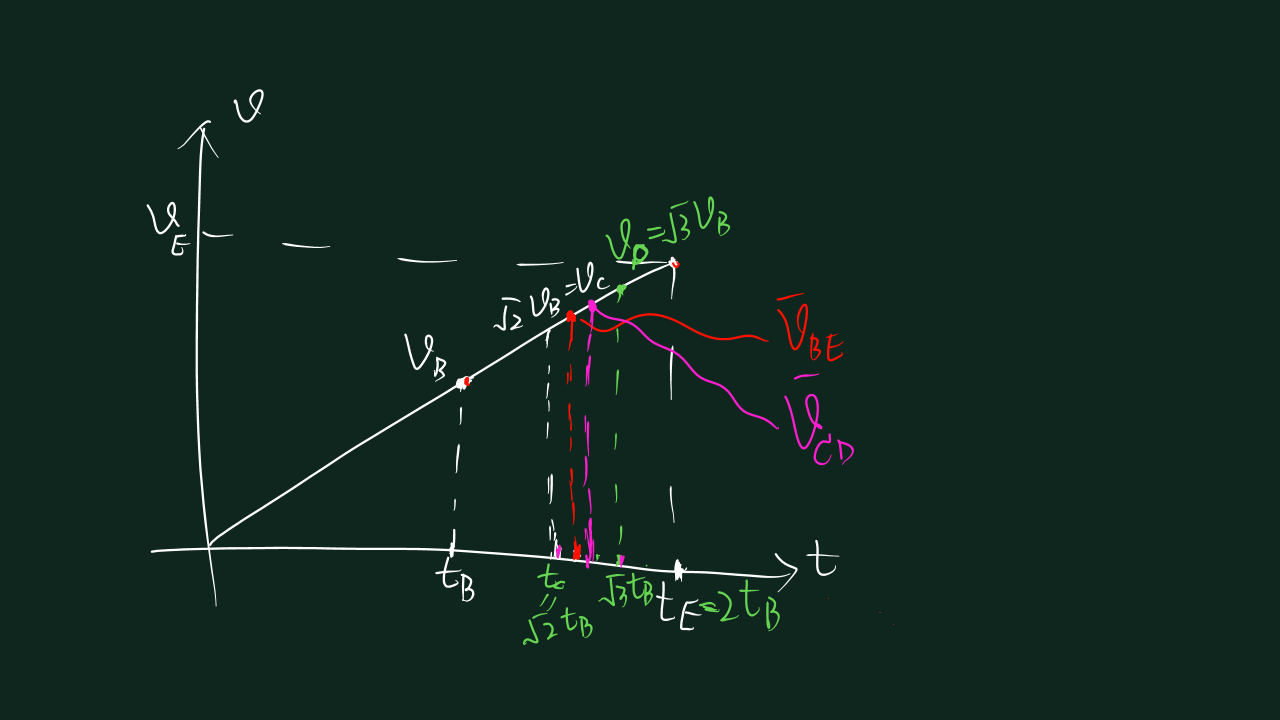 v
v_E
v_D=√3 v_B
√2 v_B=v_C
v_B
v̄_BE
v̄_CD
t
t_B
t_C
=
√2 t_B
√3 t_B
t_E=2t_B